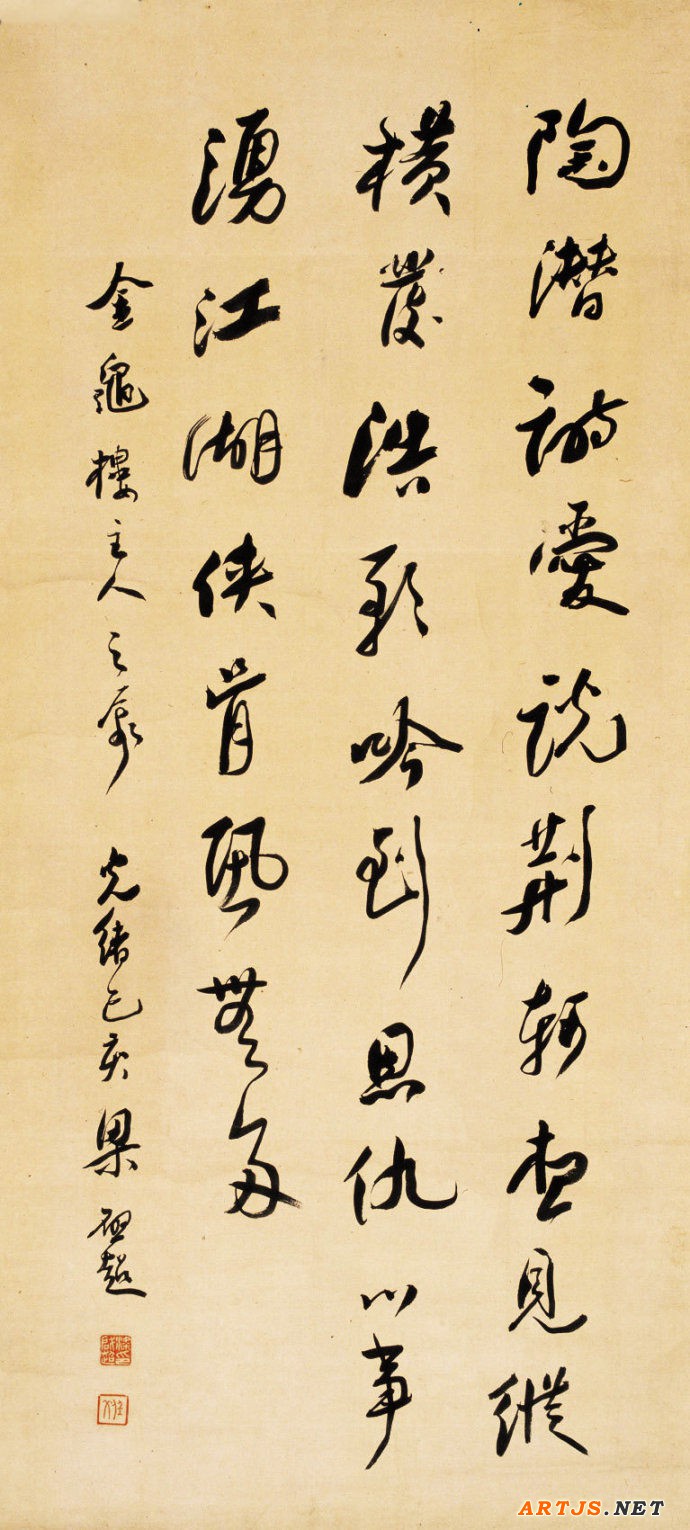 陶潛詩愛說荊軻想見縱
橫發浩歌吟到恩仇心事
湧江湖俠骨恐無多
金龜樓主人之 光緒己亥 梁啟超
梁印啟超
ARTJS.NET